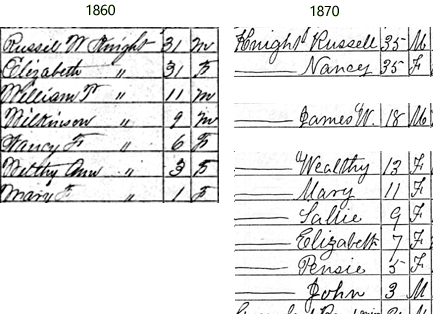 1860
Russell W Knight 31 M
Elizabeth " 31 F
William P " 11 M
Wilkinson " 9 M
Nancy F " 6 F
Welthy Ann " 3 F
Mary F " 1 F
1870
Knight Russell 35 M
—— Nancy 35 F
—— James W. 18 M
—— Wealthy 13 F
—— Mary 11 F
—— Sallie 9 F
—— Elizabeth 7 F
—— Pensie 5 F
—— John 3 M